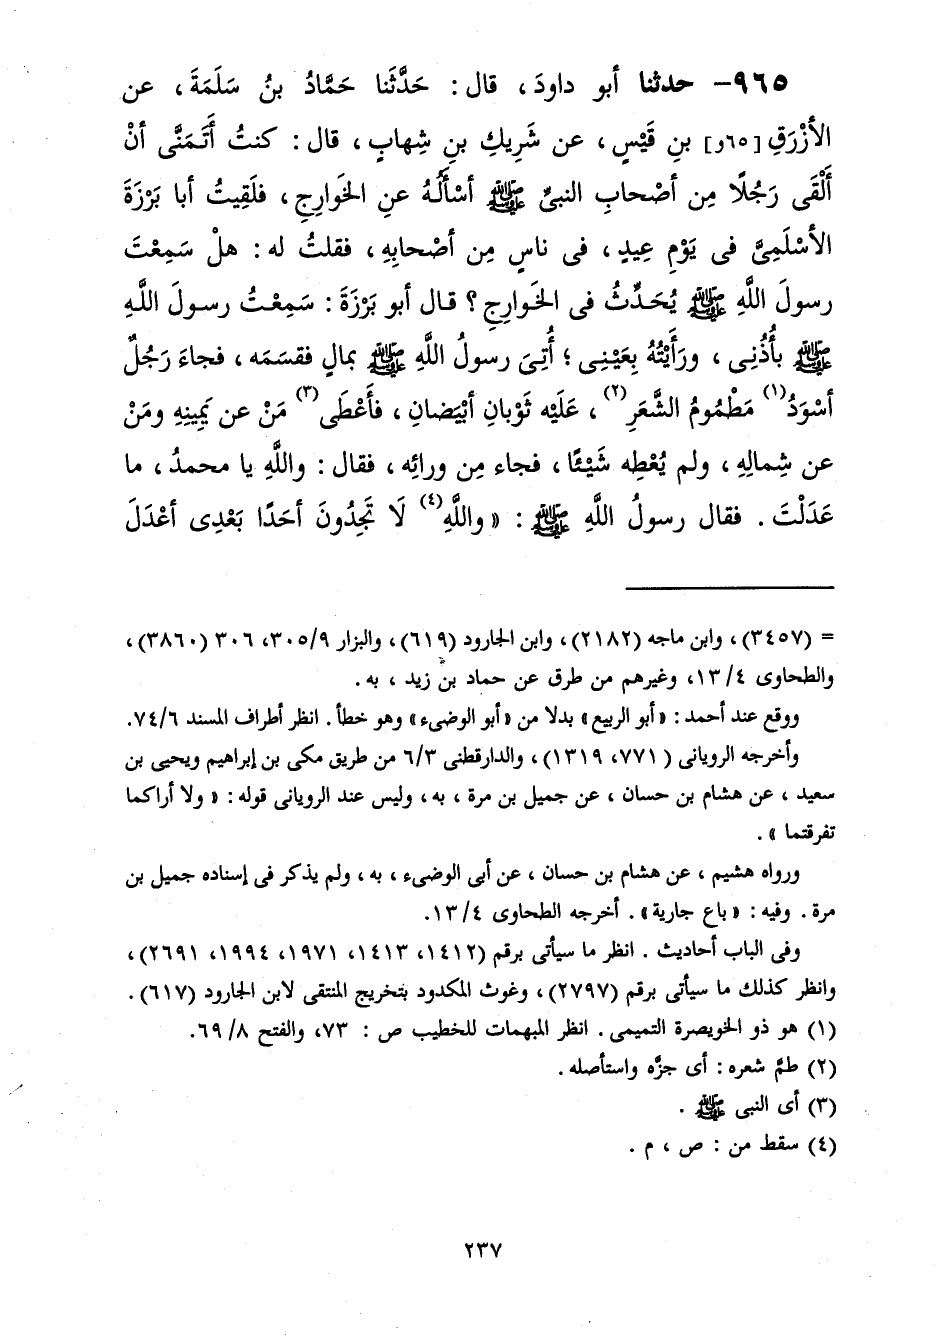 ٩٦٥- حدثنا أبو داودَ ، قال : حَدَّثَنا حَمَّادُ بنُ سَلَمَةَ ، عن
الأزْرَقِ [٦٥و] بنِ قَيْسٍ ، عن شَرِيكِ بنِ شِهابٍ ، قال : كنتُ أتَمَنَّى أنْ
ألْقَى رَجُلًا مِن أصْحابِ النبىِّ ﷺ أسْألُهُ عنِ الخَوارِجِ ، فلَقِيتُ أبا بَرْزَةَ
الأسْلَمِىَّ فى يَوْمِ عِيدٍ ، فى ناسٍ مِن أصْحابِهِ ، فقلتُ له : هلْ سَمِعْتَ
رسولَ اللَّهِ ﷺ يُحَدِّثُ فى الخَوارِجِ ؟ قال أبو بَرْزَةَ : سَمِعْتُ رسولَ اللَّهِ
ﷺ بأُذُنِى ، ورَأَيْتُهُ بِعَيْنِى ؛ أُتِىَ رسولُ اللَّهِ ﷺ بمالٍ فقسَمَه ، فجاءَ رَجُلٌ
أسْوَدُ(١) مَطْمُومُ الشَّعَرِ(٢) ، عَلَيْه ثَوْبانِ أبْيَضانِ ، فأَعْطَى(٣) مَنْ عن يَمِينِهِ ومَنْ
عن شِمالِهِ ، ولم يُعْطِه شَيْئًا ، فجاء مِن ورائِه ، فقال : واللَّهِ يا محمدُ ، ما
عَدَلْتَ . فقال رسولُ اللَّهِ ﷺ : « واللَّهِ(٤) لَا تَجِدُونَ أحَدًا بَعْدِى أعْدَلَ
= (٣٤٥٧) ، وابن ماجه (٢١٨٢) ، وابن الجارود (٦١٩) ، والبزار ٣٠٥/٩، ٣٠٦ (٣٨٦٠) ،
والطحاوى ١٣/٤، وغيرهم من طرق عن حماد بن زيد ، به .
ووقع عند أحمد : « أبو الربيع » بدلا من « أبو الوضىء » وهو خطأ . انظر أطراف المسند ٧٤/٦.
وأخرجه الرويانى (٧٧١، ١٣١٩) ، والدارقطنى ٦/٣ من طريق مكى بن إبراهيم ويحيى بن
سعيد ، عن هشام بن حسان ، عن جميل بن مرة ، به ، وليس عند الرويانى قوله : « ولا أراكما
تفرقتما » .
ورواه هشيم ، عن هشام بن حسان ، عن أبى الوضىء ، به ، ولم يذكر فى إسناده جميل بن
مرة . وفيه : « باع جارية » . أخرجه الطحاوى ١٣/٤.
وفى الباب أحاديث . انظر ما سيأتى برقم (١٤١٢، ١٤١٣، ١٩٧١، ١٩٩٤، ٢٦٩١) ،
وانظر كذلك ما سيأتى برقم (٢٧٩٧) ، وغوث المكدود بتخريج المنتقى لابن الجارود (٦١٧) .
(١) هو ذو الخويصرة التميمى . انظر المبهمات للخطيب ص : ٧٣، والفتح ٦٩/٨.
(٢) طمَّ شعره : أى جزَّه واستأصله .
(٣) أى النبى ﷺ .
(٤) سقط من : ص ، م .
٢٣٧